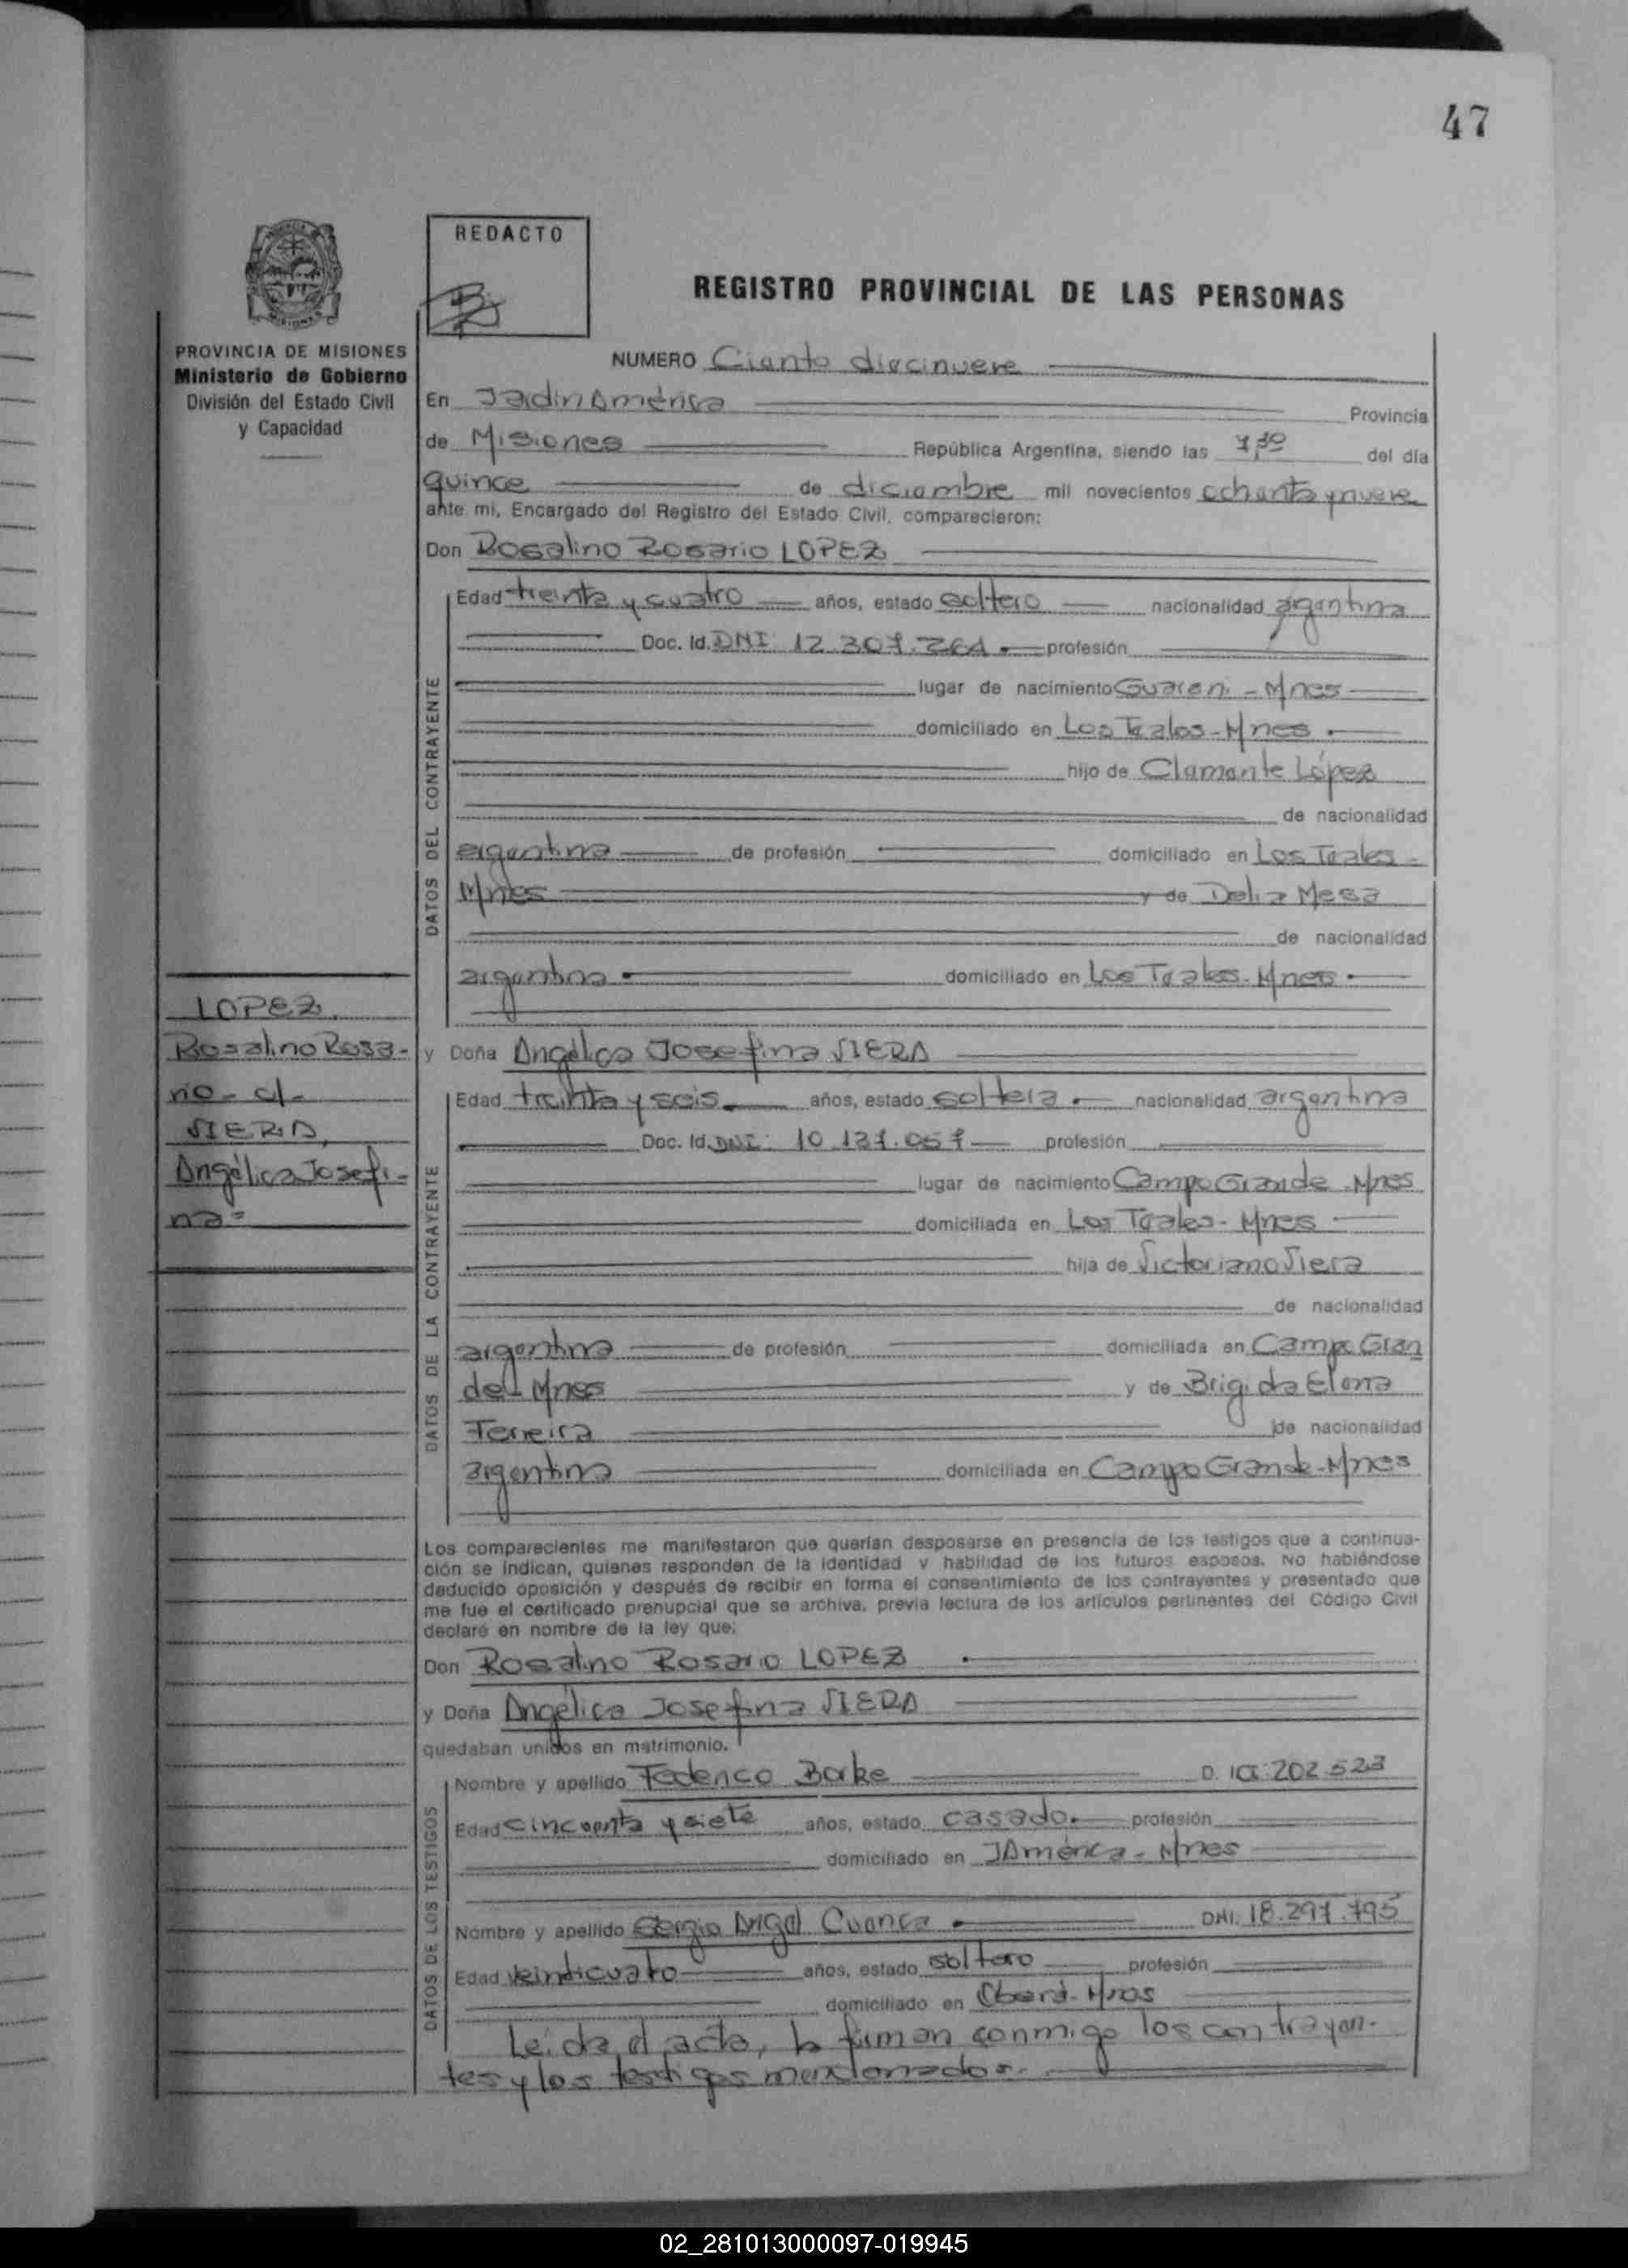 47
REDACTO
REGISTRO PROVINCIAL DE LAS PERSONAS
PROVINCIA DE MISIONES
Ministerio de Gobierno
División del Estado Civil
y Capacidad
NUMERO Ciento diecinueve
En Jardin América Provincia
de Misiones República Argentina, siendo las del día
quince de diciembre mil novecientos ochenta y nueve
ante mi, Encargado del Registro del Estado Civil, comparecieron:
Don Rosalino Rosario LOPEZ
DATOS DEL CONTRAYENTE
Edad treinta y cuatro años, estado soltero nacionalidad argentina
Doc. Id. DNI: 12.307.264 profesión
lugar de nacimiento Guarani - Mnes
domiciliado en Los Teales - Mnes
hijo de Clemente López
de nacionalidad
argentina de profesión domiciliado en Los Teales -
Mnes y de Delia Mesa
de nacionalidad
argentina domiciliado en Los Teales - Mnes
LOPEZ
Rosalino Rosa-
rio - c/-
VIERA,
Angélica Josefi-
na=
y Doña Angélica Josefina VIERA
DATOS DE LA CONTRAYENTE
Edad treinta y seis años, estado soltera nacionalidad argentina
Doc. Id. DNI: 10.137.057 profesión
lugar de nacimiento Campo Grande - Mnes
domiciliada en Los Teales - Mnes
hija de Victoriano Viera
de nacionalidad
argentina de profesión domiciliada en Campo Gran
de - Mnes y de Brigida Elena
Ferreira de nacionalidad
argentina domiciliada en Campo Grande - Mnes
Los comparecientes me manifestaron que querían desposarse en presencia de los testigos que a continua-
ción se indican, quienes responden de la identidad y habilidad de los futuros esposos. No habiéndose
deducido oposición y después de recibir en forma el consentimiento de los contrayentes y presentado que
me fue el certificado prenupcial que se archiva, previa lectura de los artículos pertinentes del Código Civil
declaré en nombre de la ley que:
Don Rosalino Rosario LOPEZ
y Doña Angélica Josefina VIERA
quedaban unidos en matrimonio.
DATOS DE LOS TESTIGOS
Nombre y apellido Federico Barke 202.523
Edad cincuenta y siete años, estado casado profesión
domiciliado en JAmérica - Mnes
Nombre y apellido Sergio Angel Cuenca DNI. 18.297.795
Edad veinticuatro años, estado soltero profesión
domiciliado en Oberá - Mnes
Leida el acta, la firman conmigo los contrayen-
tes y los testigos mencionados.
02_281013000097-019945